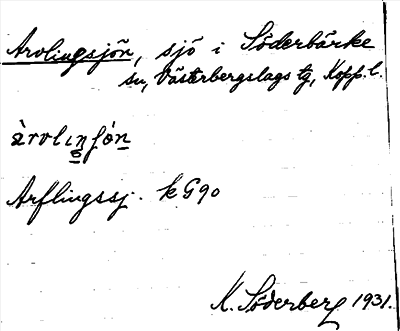 Arvlingsjön, sjö i Söderbärke
sn, Västerbergslags tg, Kopp. l.
àrvlinʃón
Arflingssj. k G90
K. Söderberg 1931.